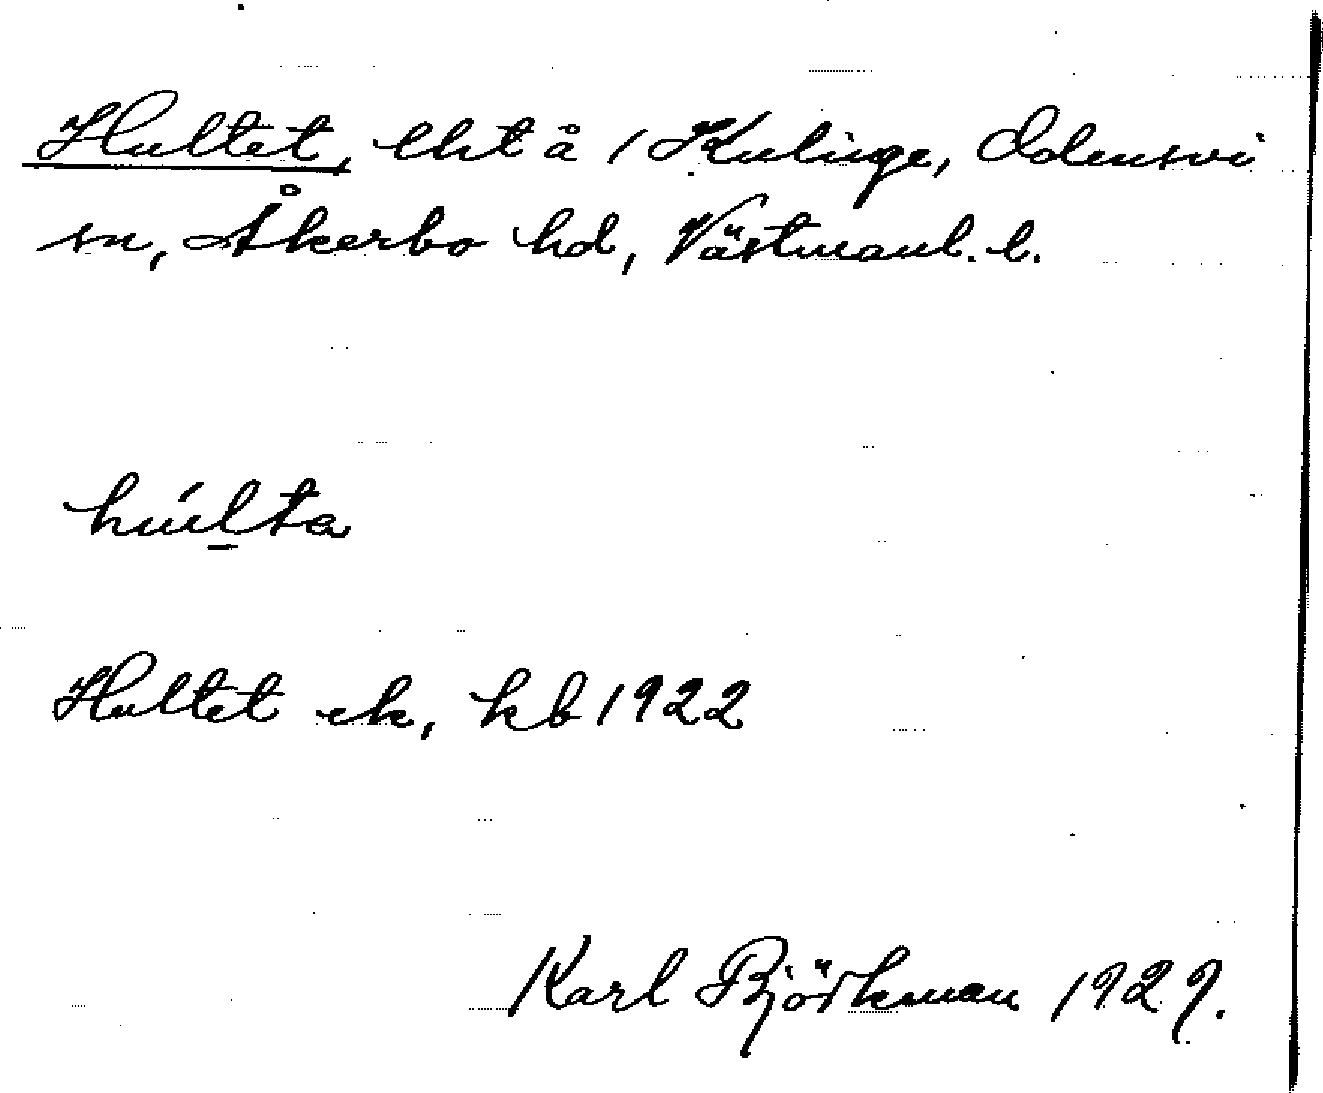 Hultet, lht å 1 Kulinge, Odensvi
sn, Åkerbo hd, Västmanl. l.
húl̠ta
Hultet ek, kb 1922
Karl Björkman 1929.